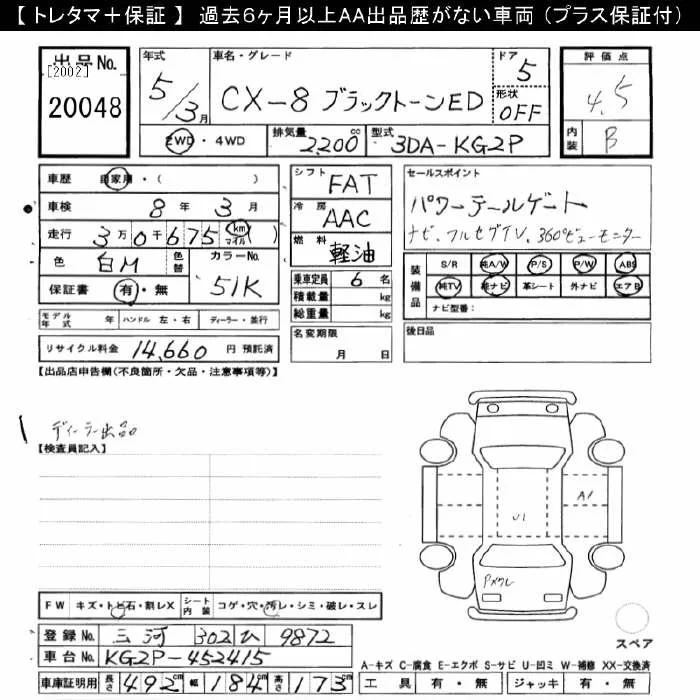 【 トレタマ＋保証 】 過去6ヶ月以上AA出品歴がない車両（プラス保証付）
出品No. [2002] 20048
年式 5/3月
車名・グレード CX-8 ブラックトーンED
ドア 5
形状 OFF
2WD・4WD
排気量 2,200 cc
型式 3DA-KG2P
評価点 4.5
内装 B
車歴 自家用・( )
車検 8年 3月
走行 3万0千675 km マイル
色 白M 色替
カラーNo. 51K
保証書 有・無
モデル年式 年 ハンドル 左・右 ディーラー・並行
リサイクル料金 14,660 円 預託済
シフト FAT
冷房 AAC
燃料 軽油
乗車定員 6 名
積載量 kg
総重量 kg
名変期限 月 日
セールスポイント
パワーテールゲート
ナビ、フルセグTV、360°ビューモニター
装備品 S/R 純A/W P/S P/W ABS
純TV 純ナビ 革シート 外ナビ エアB
ナビ型番：
後日品
【出品店申告欄(不良箇所・欠品・注意事項等)】
ディーラー出品
【検査員記入】
A1
U1
Pメクレ
FW キズ・トビ石・割レX シート内装 コゲ・穴・汚レ・シミ・破レ・スレ
登録No. 三河 302 ひ 9872
車台No. KG2P-452415
車庫証明用 長さ 492cm 幅 184cm 高さ 173cm
スペア
A-キズ C-腐食 E-エクボ S-サビ U-凹ミ W-補修 XX-交換済
工具 有・無 ジャッキ 有・無